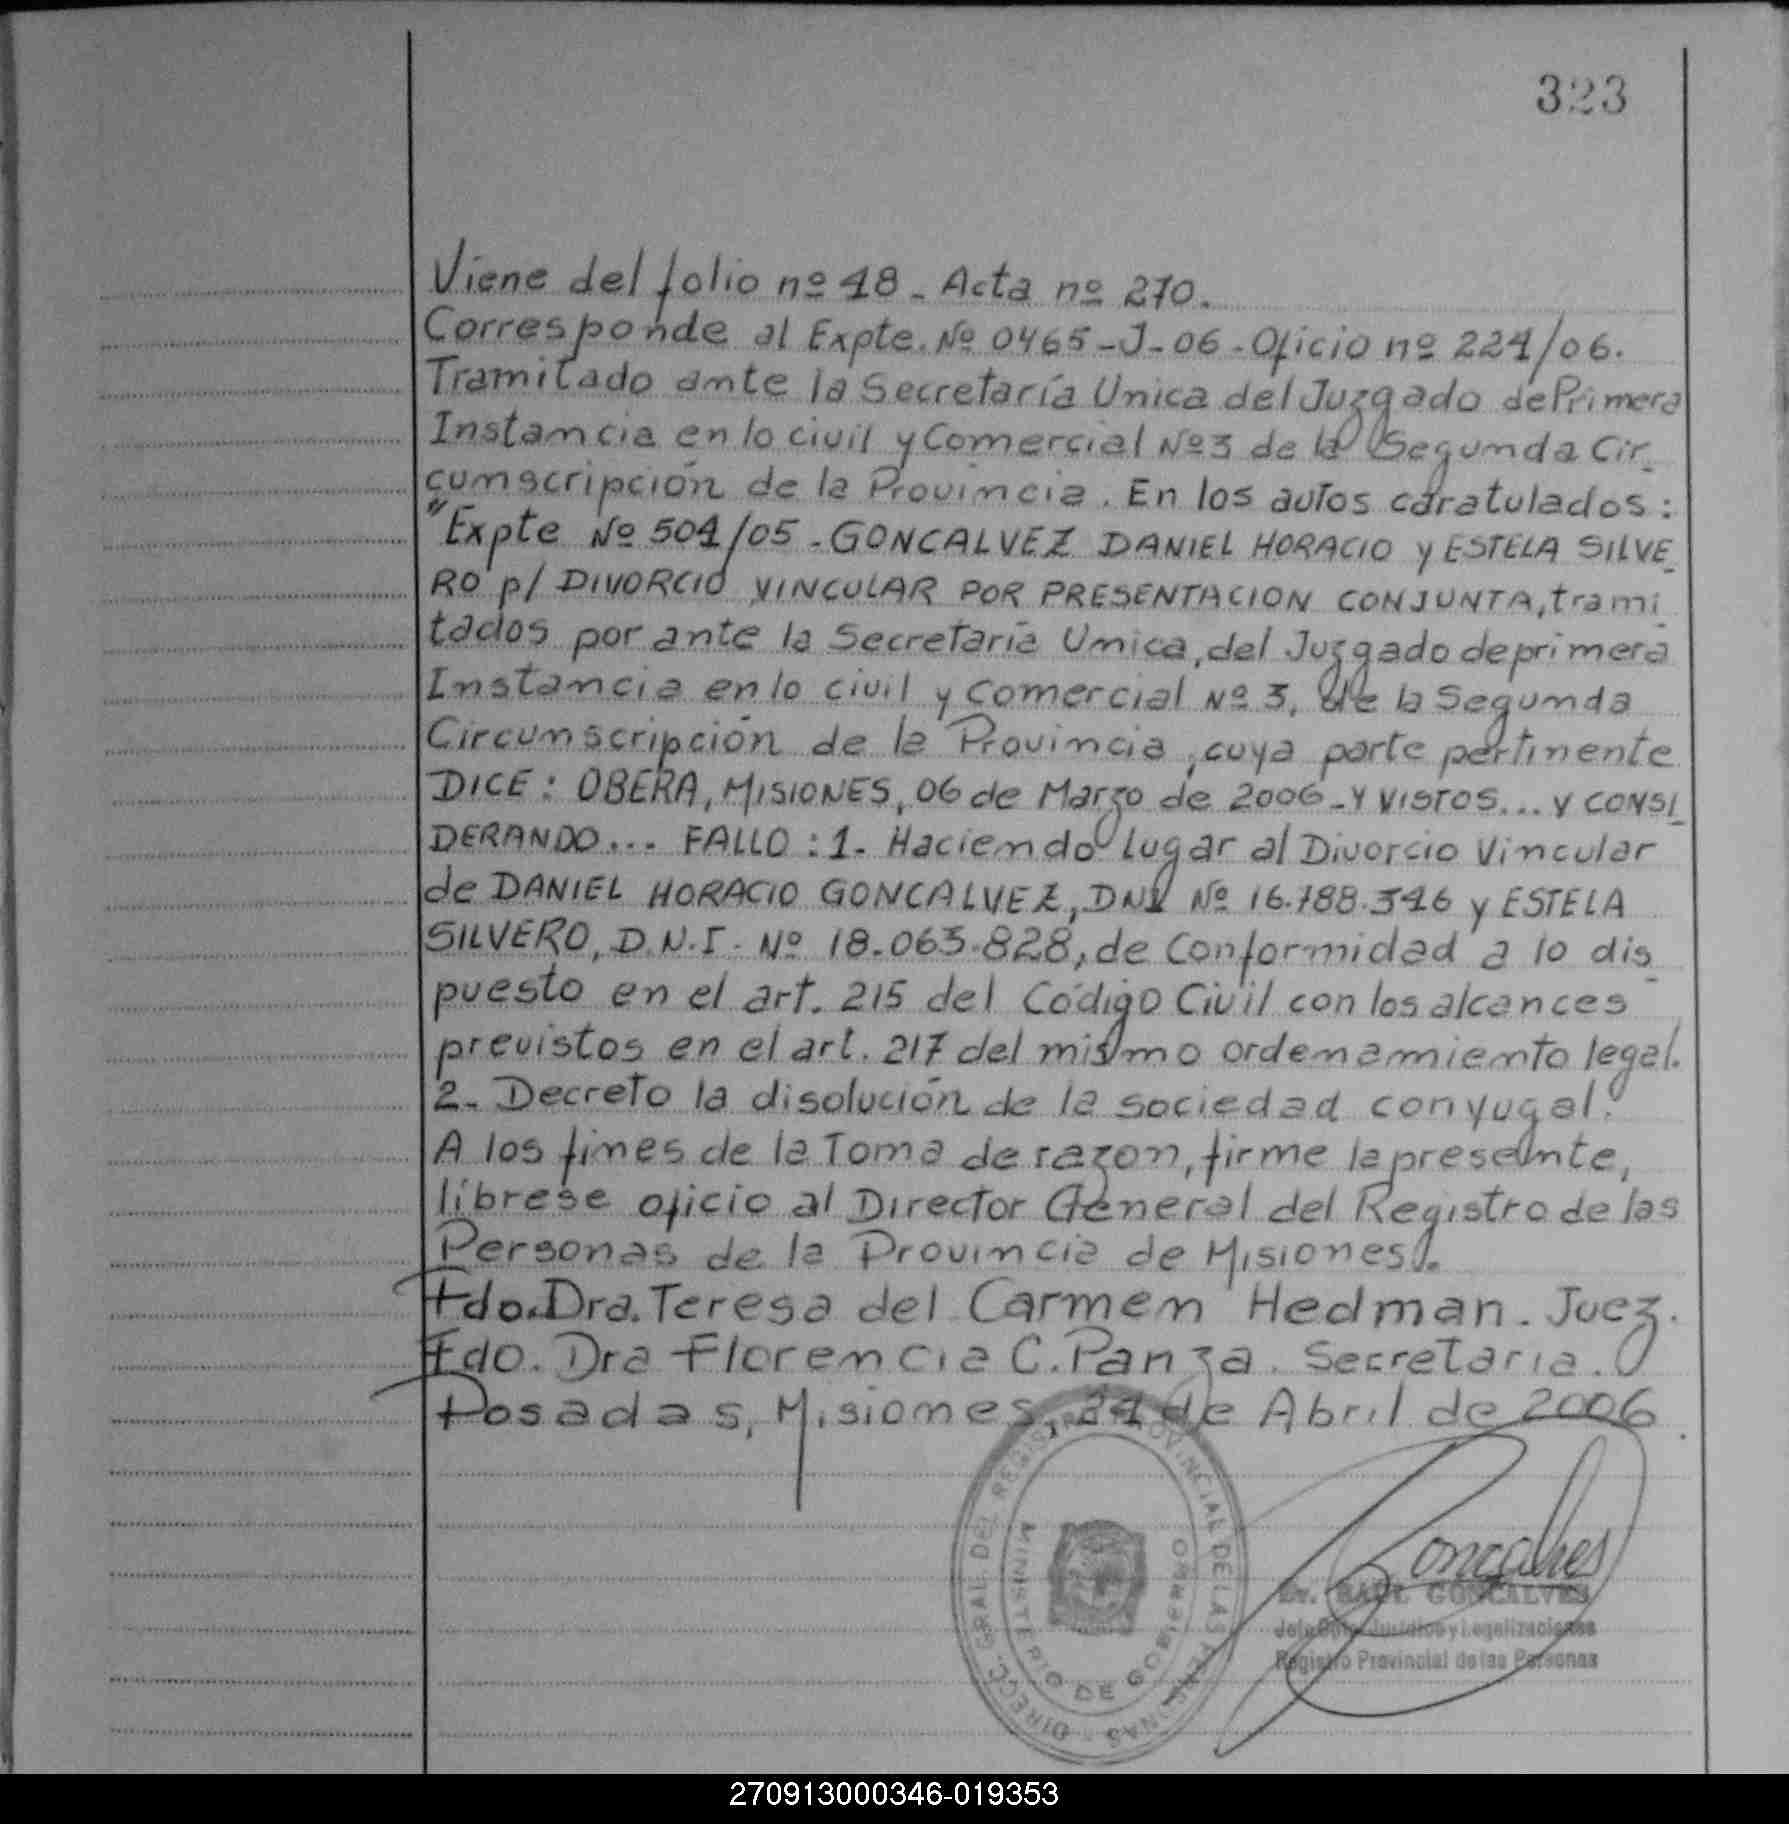 323
Viene del folio nº 18 - Acta nº 270.
Corresponde al Expte. Nº 0465-J-06 - Oficio nº 221/06.
Tramitado ante la Secretaría Unica del Juzgado de Primera
Instancia en lo civil y Comercial Nº 3 de la Segunda Cir_
cumscripción de la Provincia. En los autos caratulados:
"Expte Nº 501/05 - GONCALVEZ DANIEL HORACIO y ESTELA SILVE_
RO p/ DIVORCIO VINCULAR POR PRESENTACION CONJUNTA, trami_
tados por ante la Secretaría Unica, del Juzgado de primera
Instancia en lo civil y Comercial Nº 3, de la Segunda
Circumscripción de la Provincia, cuya parte pertinente
DICE: OBERA, MISIONES, 06 de Marzo de 2006 - Y VISTOS... Y CONSI_
DERANDO... FALLO: 1- Haciendo lugar al Divorcio Vincular
de DANIEL HORACIO GONCALVEZ, DNI Nº 16.788.346 y ESTELA
SILVERO, D.N.I. Nº 18.063.828, de Conformidad a lo dis_
puesto en el art. 215 del Código Civil con los alcances
previstos en el art. 217 del mismo ordenamiento legal.
2- Decreto la disolución de la sociedad conyugal.
A los fines de la Toma de razon, firme la presente,
líbrese oficio al Director General del Registro de las
Personas de la Provincia de Misiones.
Fdo. Dra. Teresa del Carmen Hedman. Juez.
Fdo. Dra Florencia C. Panza. Secretaria.
Posadas, Misiones, 21 de Abril de 2006
DIRECC. GRAL. DEL REGISTRO PROVINCIAL DE LAS PERSONAS
MINISTERIO DE GOBIERNO
Goncalves
Dr. RAUL GONCALVES
Jefe Dpto. Jurídico y Legalizaciones
Registro Provincial de las Personas
270913000346-019353